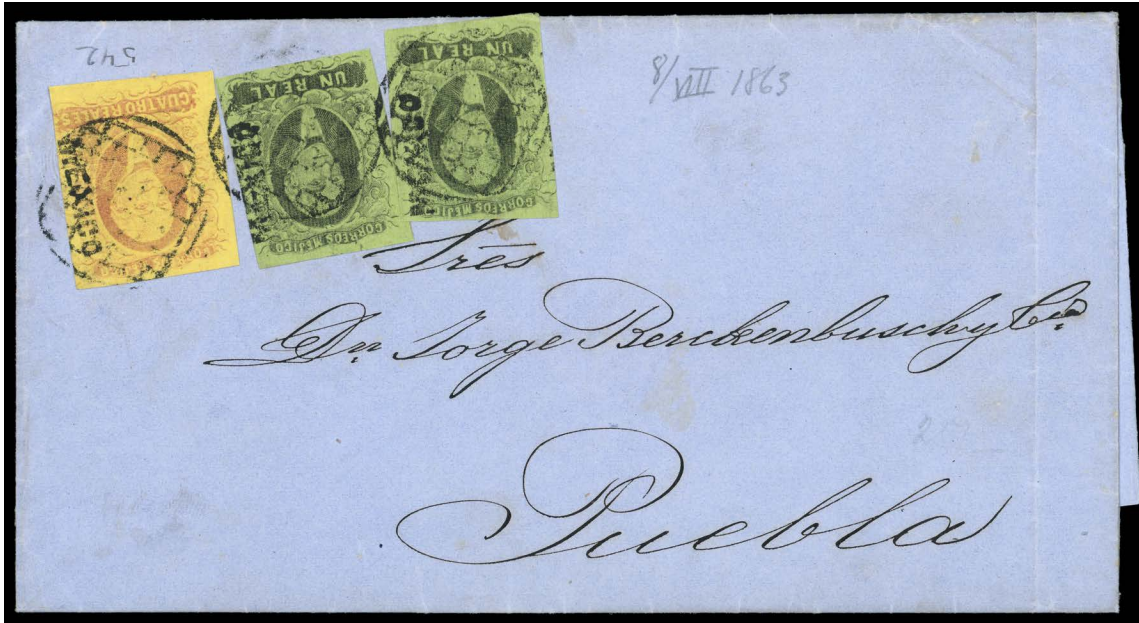 542
8/VIII 1863
CUATRO REALES
UN REAL
UN REAL
MEXICO
CORREOS MEJICO
CORREOS MEJICO
Sres
Dn Jorge Berckenbusch y Cia
Puebla